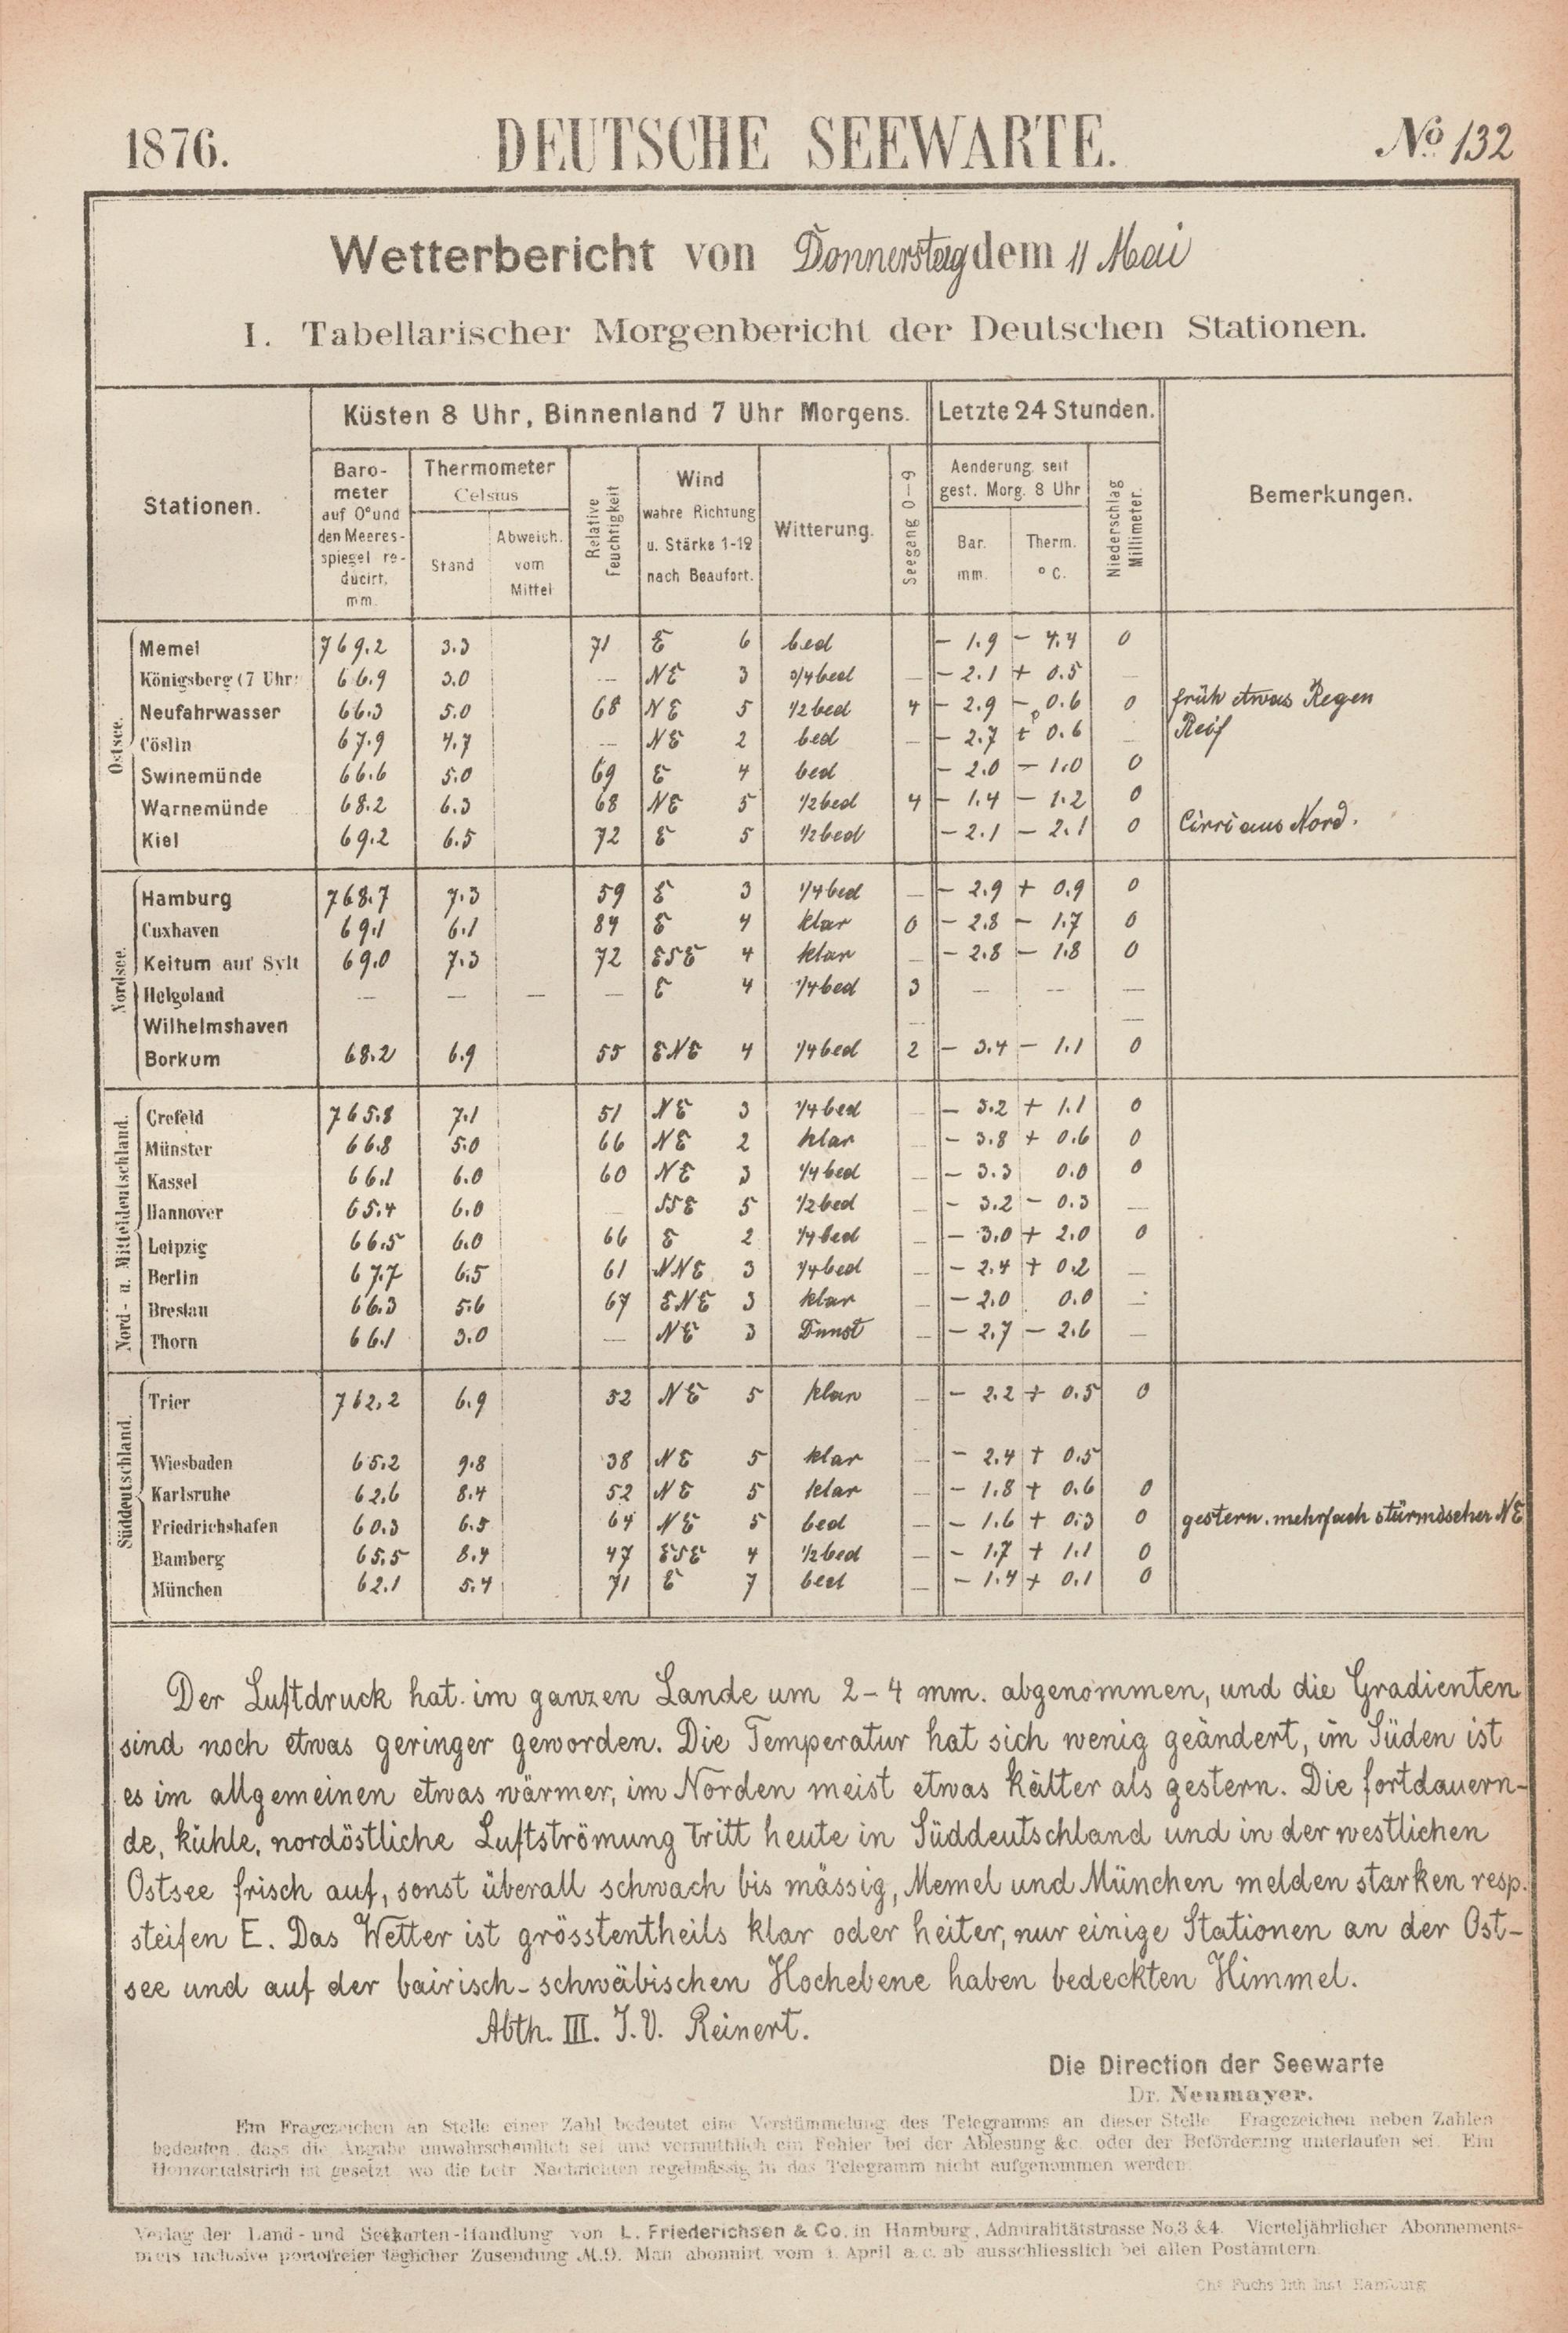 1876. DEUTSCHE SEEWARTE. No 132
Wetterbericht von Donnerstag dem 11 Mai
I. Tabellarischer Morgenbericht der Deutschen Stationen.
Stationen.
Küsten 8 Uhr, Binnenland 7 Uhr Morgens.
Letzte 24 Stunden.
Bemerkungen.
Baro-
meter
auf 0° und
den Meeres-
spiegel re-
ducirt,
mm.
Thermometer
Celsius
Stand
Abweich.
vom
Mittel
Relative
Feuchtigkeit
Wind
wahre Richtung
u. Stärke 1-12
nach Beaufort.
Witterung.
Seegang 0-9
Aenderung seit
gest. Morg. 8 Uhr
Bar.
mm.
Therm.
° C.
Niederschlag
Millimeter.
Ostsee.
Memel 769.2 3.3 71 E 6 bed - 1.9 - 4.4 0
Königsberg (7 Uhr) 66.9 3.0 — NE 3 3/4 bed — - 2.1 + 0.5 —
Neufahrwasser 66.3 5.0 68 NE 5 1/2 bed 4 - 2.9 - 0.6 0 früh etwas Regen
Cöslin 67.9 4.7 — NE 2 bed — - 2.7 + 0.6 — Reif
Swinemünde 66.6 5.0 69 E 4 bed - 2.0 - 1.0 0
Warnemünde 68.2 6.3 68 NE 5 1/2 bed 4 - 1.4 - 1.2 0
Kiel 69.2 6.5 72 E 5 1/2 bed - 2.1 - 2.1 0 Cirri aus Nord.
Nordsee.
Hamburg 768.7 7.3 59 E 3 1/4 bed — - 2.9 + 0.9 0
Cuxhaven 69.1 6.1 84 E 4 klar 0 - 2.8 - 1.7 0
Keitum auf Sylt 69.0 7.3 72 ESE 4 klar — - 2.8 - 1.8 0
Helgoland — — — — E 4 1/4 bed 3 — — —
Wilhelmshaven — —
Borkum 68.2 6.9 55 ENE 4 1/4 bed 2 - 3.4 - 1.1 0
Nord- u. Mitteldeutschland.
Crefeld 765.8 7.1 51 NE 3 1/4 bed — - 3.2 + 1.1 0
Münster 66.8 5.0 66 NE 2 klar — - 3.8 + 0.6 0
Kassel 66.1 6.0 60 NE 3 1/4 bed — - 3.3 0.0 0
Hannover 65.4 6.0 — SSE 5 1/2 bed — - 3.2 - 0.3 —
Leipzig 66.5 6.0 66 E 2 1/4 bed — - 3.0 + 2.0 0
Berlin 67.7 6.5 61 NNE 3 1/4 bed — - 2.4 + 0.2 —
Breslau 66.3 5.6 67 ENE 3 klar — - 2.0 0.0 —
Thorn 66.1 3.0 — NE 3 Dunst — - 2.7 - 2.6 —
Süddeutschland.
Trier 762.2 6.9 52 NE 5 klar — - 2.2 + 0.5 0
Wiesbaden 65.2 9.8 38 NE 5 klar — - 2.4 + 0.5
Karlsruhe 62.6 8.4 52 NE 5 klar — - 1.8 + 0.6 0
Friedrichshafen 60.3 6.5 64 NE 5 bed — - 1.6 + 0.3 0 gestern mehrfach stürmischer NE
Bamberg 65.5 8.4 47 ESE 4 1/2 bed — - 1.7 + 1.1 0
München 62.1 5.4 71 E 7 bed — - 1.4 + 0.1 0
Der Luftdruck hat im ganzen Lande um 2-4 mm. abgenommen, und die Gradienten
sind noch etwas geringer geworden. Die Temperatur hat sich wenig geändert, im Süden ist
es im allgemeinen etwas wärmer, im Norden meist etwas kälter als gestern. Die fortdauern-
de, kühle, nordöstliche Luftströmung tritt heute in Süddeutschland und in der westlichen
Ostsee frisch auf, sonst überall schwach bis mässig, Memel und München melden starken resp.
steifen E. Das Wetter ist grösstentheils klar oder heiter, nur einige Stationen an der Ost-
see und auf der bairisch-schwäbischen Hochebene haben bedeckten Himmel.
Abth. III. J. V. Reinert.
Die Direction der Seewarte
Dr. Neumayer.
Ein Fragezeichen an Stelle einer Zahl bedeutet eine Verstümmelung des Telegramms an dieser Stelle. Fragezeichen neben Zahlen
bedeuten, dass die Angabe unwahrscheinlich sei und vermuthlich ein Fehler bei der Ablesung &c. oder der Beförderung unterlaufen sei. Ein
Horizontalstrich ist gesetzt, wo die betr. Nachrichten regelmässig in das Telegramm nicht aufgenommen werden.
Verlag der Land- und Seekarten-Handlung von L. Friederichsen & Co. in Hamburg, Admiralitätstrasse No. 3 & 4. Vierteljährlicher Abonnements-
preis inclusive portofreier täglicher Zusendung M. 9. Man abonnirt vom 1. April a. c. ab ausschliesslich bei allen Postämtern.
Chs Fuchs lith Inst Hamburg